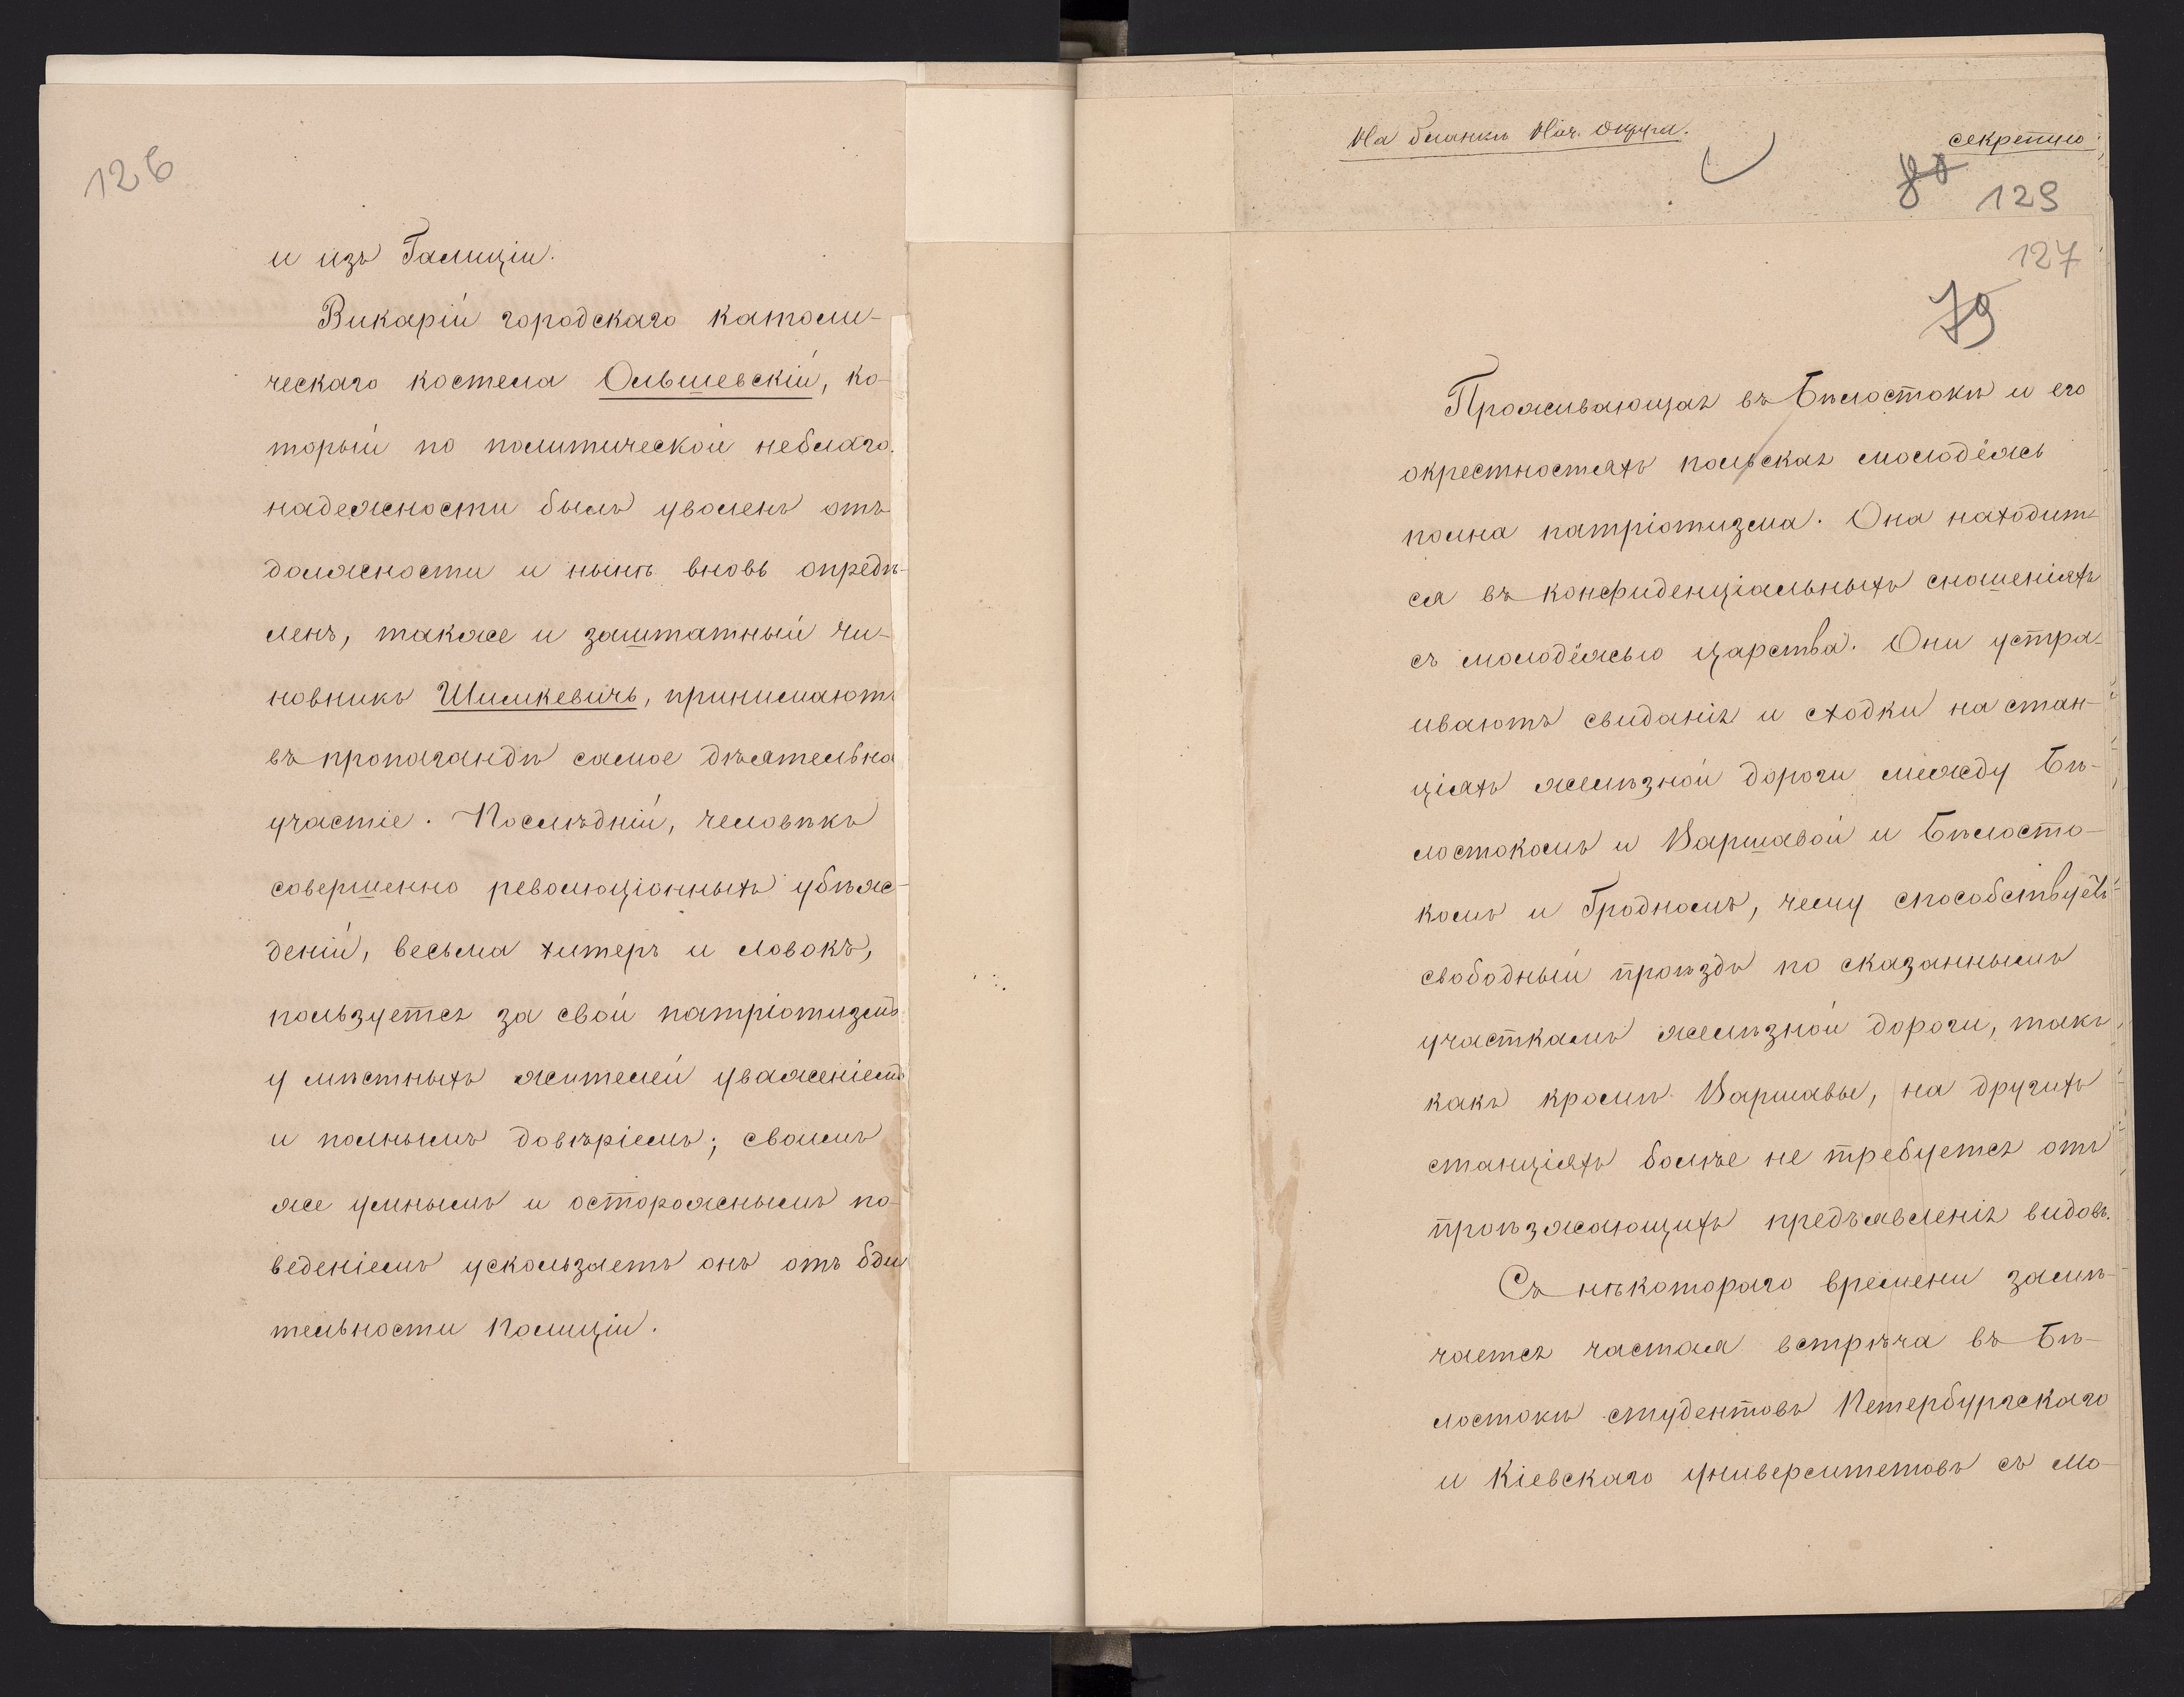 126
и изъ Галиціи.
Викарій городскаго католи-
ческаго костела Ольшевскій, ко-
торый по политической неблаго-
надежности былъ уволенъ отъ
должности и нынѣ вновь опредѣ-
ленъ, также и заштатный чи-
новникъ Шимкевичъ, принимаютъ
въ пропагандѣ самое дѣятельно
участіе. Послѣдній, человѣкъ
совершенно революціонныхъ убѣж-
деній, весьма хитеръ и ловокъ,
пользуется за свой патріотизмъ
у мѣстныхъ жителей уваженіемъ
и полнымъ довѣріемъ; своимъ
же умнымъ и осторожнымъ по-
веденіемъ ускользаетъ онъ отъ бди
тельности Полиціи.
На бланкѣ Нач. Округа.
секретно
80
129
127
79
Проживающая въ Бѣлостокѣ и его
окрестностяхъ польская молодёжь
полна патріотизма. Она находит-
ся въ конфиденціальныхъ сношеніяхъ
съ молодёжью царства. Они устра-
иваютъ свиданія и сходки на стан-
ціяхъ желѣзной дороги между Бѣ-
лостокомъ и Варшавой и Бѣлосто-
комъ и Гродномъ, чему способствуетъ
свободный проѣздъ по сказаннымъ
участкамъ желѣзной дороги, такъ
какъ кромѣ Варшавы, на другихъ
станціяхъ болѣе не требуется отъ
проѣзжающихъ предъявленія видовъ.
Съ нѣкотораго времени замѣ-
чается частая встрѣча въ Бѣ-
лостокѣ студентовъ Петербургскаго
и Кіевскаго университетовъ съ мо-